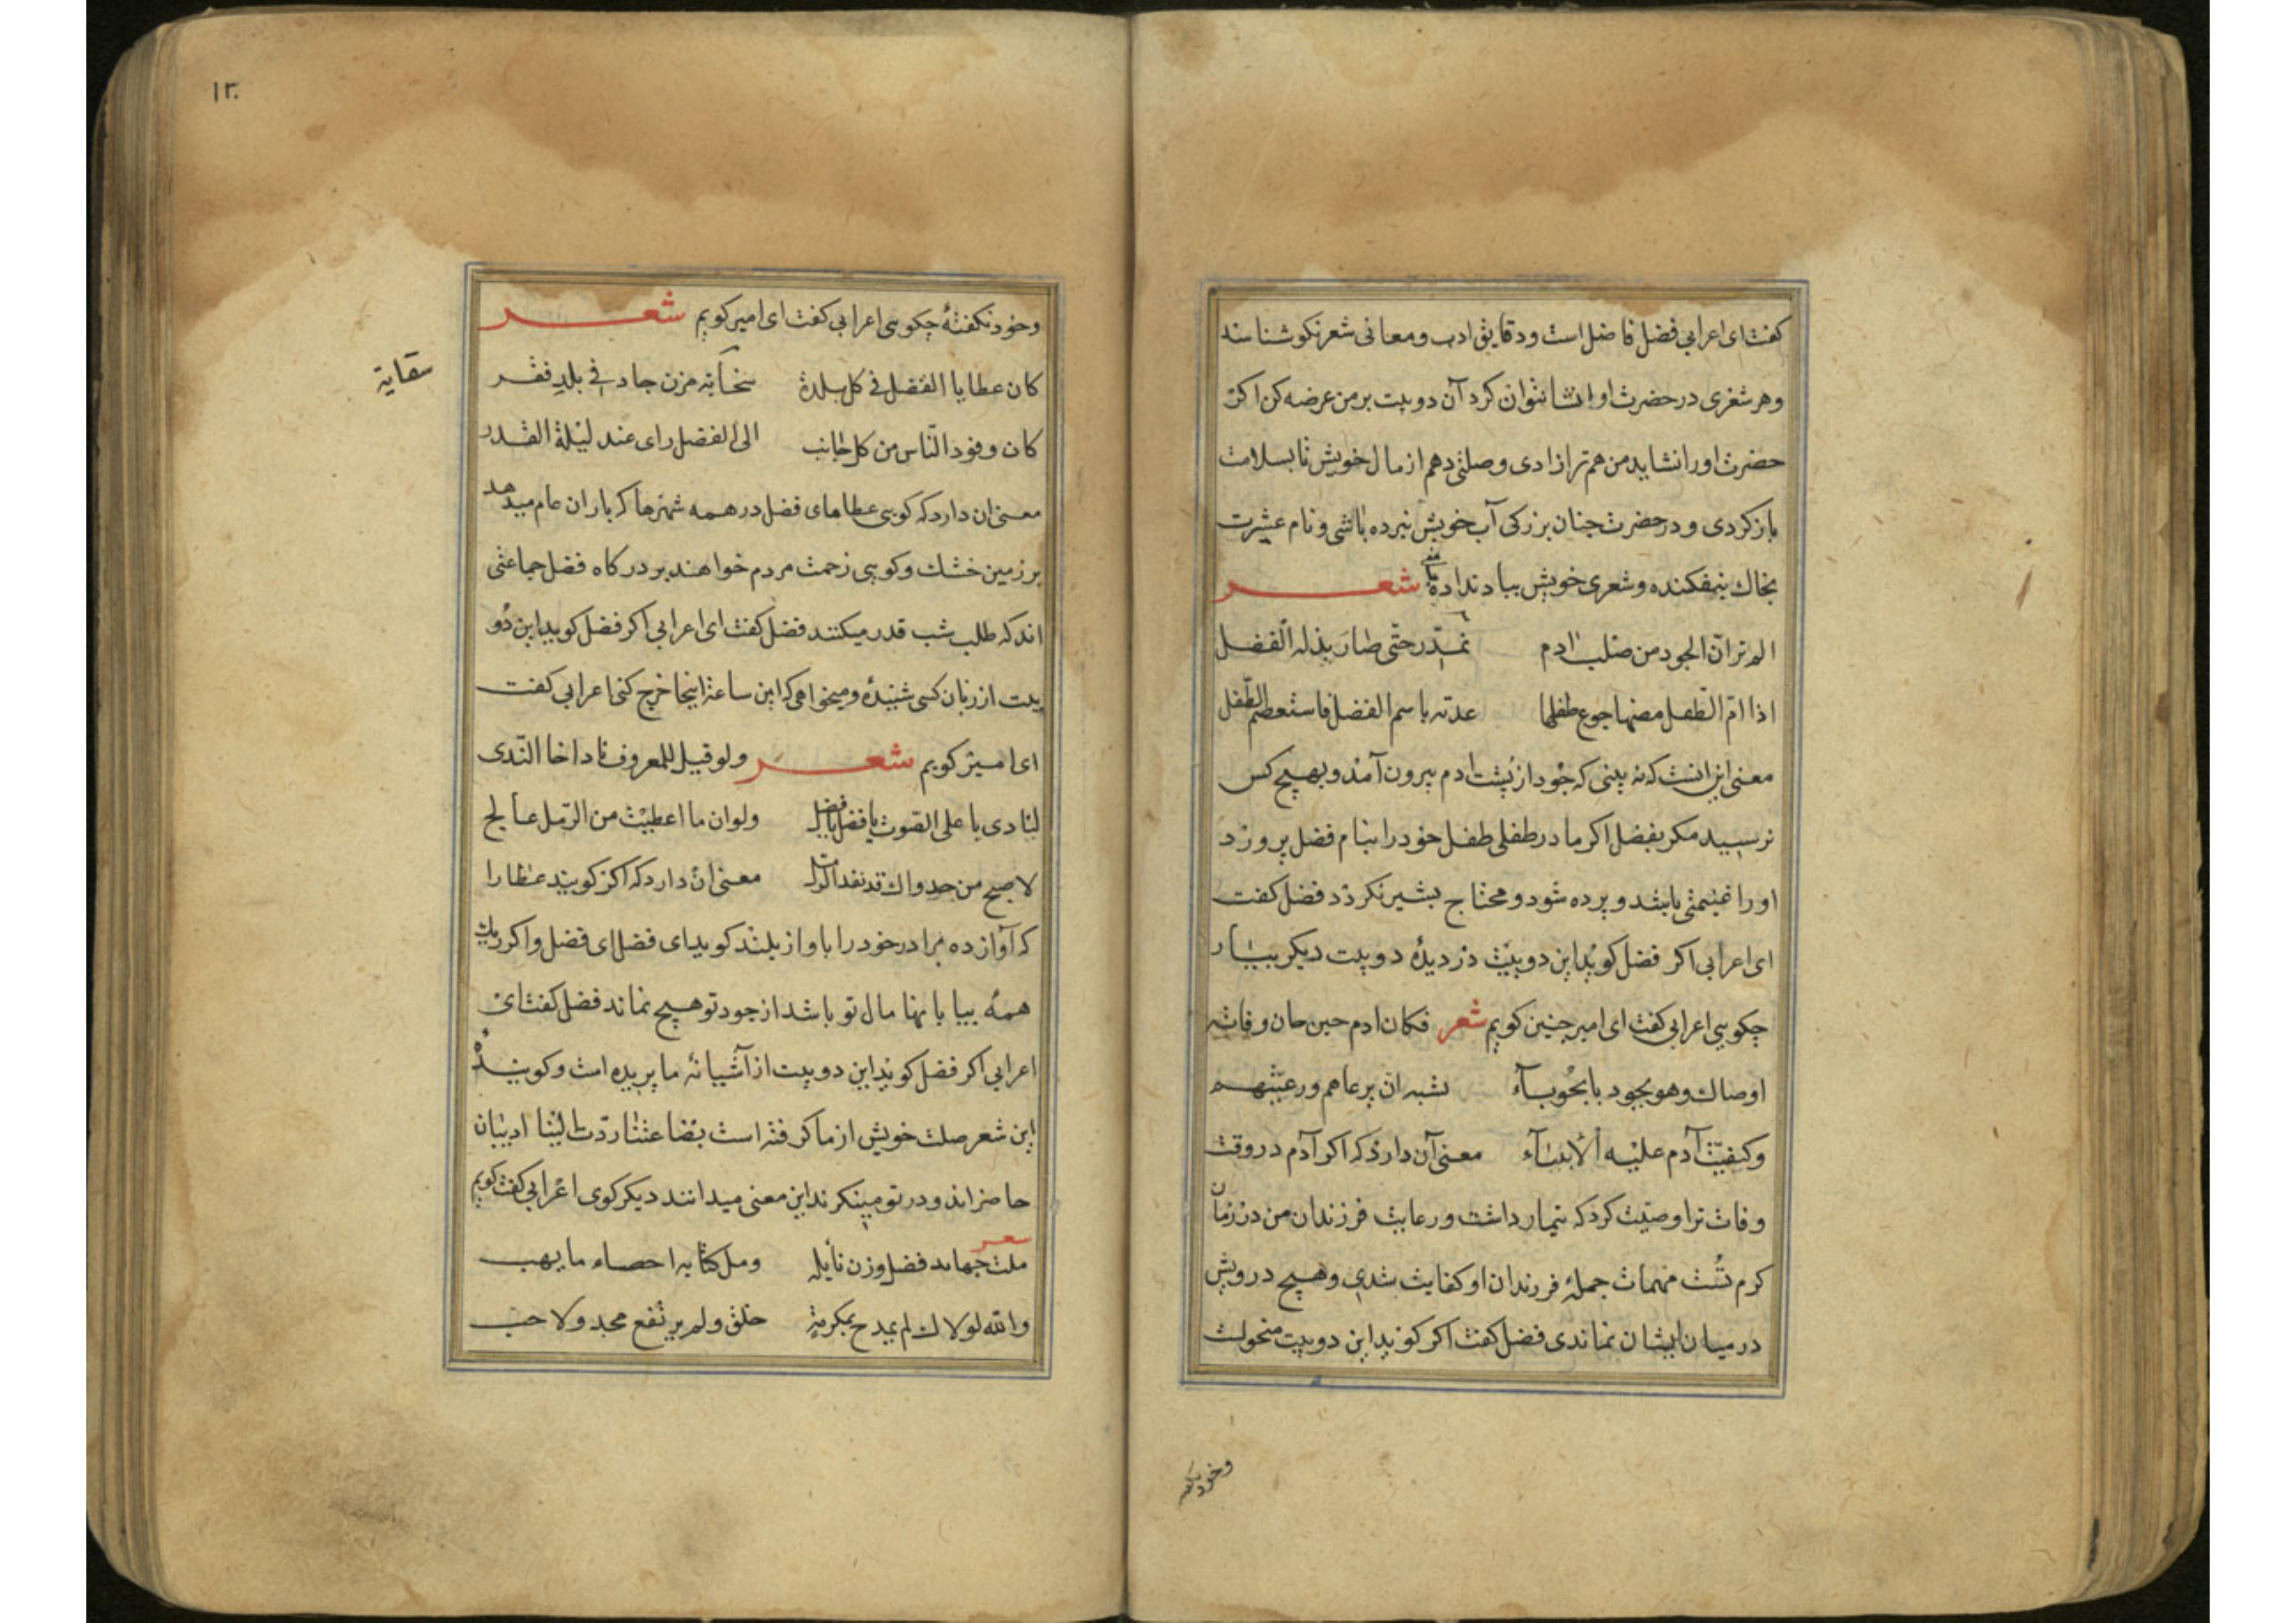 كفت ای اعرابی فضل فاضل است ودقایق ادب ومعانی شعر نكو شناسند
وهر شعری در حضرت او انشا نتوان كرد آن دو بیت بر من عرضه كن اكر
حضرت اورا نشاید من هم ترا زادی وصلتی دهم از مال خویش تا بسلامت
باز كردی ودر حضرت جنان بزركی آب خویش نبرده باشی ونام عشیرت
بخاك نیفكنده وشعری خویش بباد نداده شعر
الم تر ان الجود من صلب ادم تحدّر حتّی صار یذله الفضل
اذا امّ الطّفل مضها جوع طفلها عدته باسم الفضل فاستعصم الطّفل
معنی این انست كه نه بینی كه جود از پشت ادم بیرون آمد وبهیچ كس
نرسید مكر بفضل اكر مادر طفلی طفل خودرا بنام فضل پرورد
اورا غنیمتی باشد وپرده شود ومحتاج بشیر نكردد فضل كفت
ای اعرابی اكر فضل كوید این دو بیت دزدیدۀ دو بیت دیكر بیار
چكویی اعرابی كفت ای امیر چنین كویم شعر فكان ادم حین حان وفاته
اوصاك وهو یجود بالحوبآء ببنیه ان ترعاهم ورعیتهم
وكفیت آدم علیه الأبنآء معنی آن دارد كه اكر آدم در وقت
وفات ترا وصیّت كرد كه تیمار داشت ورعایت فرزندان من در زمان
كرم تست مهمات جملۀ فرزندان او كفایت شدی وهیچ درویش
در میان ایشان نماندی فضل كفت اكر كوید این دو بیت منحولست
وخود نكفته
۱۳۰
وخود نكفتۀ چكویی اعرابی كفت ای امیر كویم شعر
كان عطایا الفضل فی كل بلدة سحابة مزن جاد فی بلد قفر
سقایة
كان وفود النّاس من كل جانب الی الفضل رای عند لیلة القدر
معنی ان دارد كه كویی عطاهای فضل در همه شهرها كه باران عام میدهد
بر زمین خشك وكویی زحمت مردم خواهند بر دركاه فضل جماعتی
اند كه طلب شب قدر میكنند فضل كفت ای اعرابی اكر فضل كوید این دو
بیت از زبان كسی شنیدۀ ومیخواهی كه این ساعة اینجا خرج كنی اعرابی كفت
ای امیر كویم شعر ولو قیل للمعروف ناد اخا النّدی
لنادی باعلی الصّوت یا فضل یا فضل ولو ان ما اعطیت من الرّمل عالج
لاصبح من جدواك قد نفد الرمل معنی ان دارد كه اكر كویند عطارا
كه آواز ده برادر خودرا باواز بلند كوید ای فضل ای فضل واكر ریك
همۀ بیابانها مال تو باشد از جود تو هیچ نماند فضل كفت ای
اعرابی اكر فضل كوید این دو بیت از آشیانۀ ما پریده است وكویندۀ
این شعر صلت خویش از ما كرفته است بضاعتنا ردّت الینا ادیبان
حاضراند ودر تو مینكرند این معنی میدانند دیكر كوی اعرابی كفت كویم
شعر
ملت جهابد فضل وزن نایله ومل كتابه احصاء ما یهب
والله لولاك لم یمدح بمكرمة خلق ولم یرتفع مجد ولا حسب